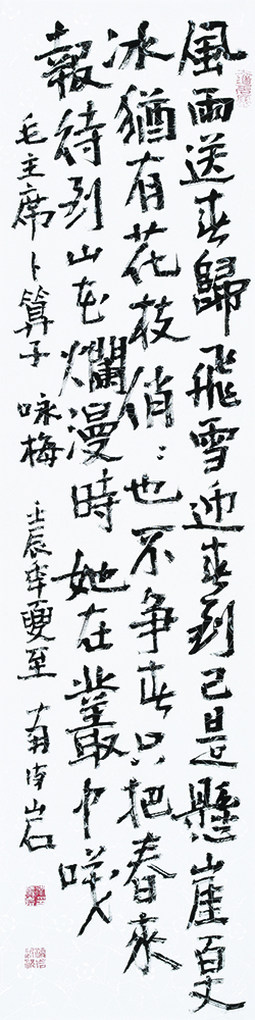 風雨送春歸飛雪迎春到已是懸崖百丈
冰猶有花枝俏〻也不争春只把春來
報待到山花爛漫時她在叢中咲
毛主席卜算子 咏梅 壬辰年夏至